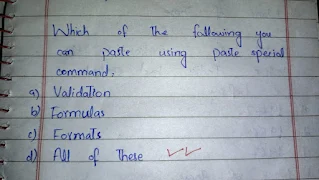 Which of the following you
can paste using paste special
command:
a) Validation
b) Formulas
c) Formats
d) All of these